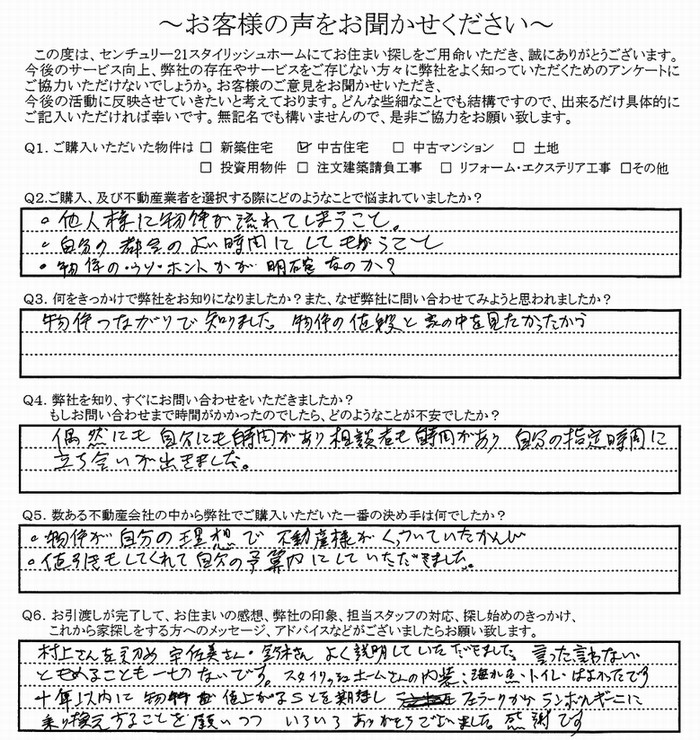 ～お客様の声をお聞かせください～
この度は、センチュリー21スタイリッシュホームにてお住まい探しをご用命いただき、誠にありがとうございます。
今後のサービス向上、弊社の存在やサービスをご存じない方々に弊社をよく知っていただくためのアンケートに
ご協力いただけないでしょうか。お客様のご意見をお聞かせいただき、
今後の活動に反映させていきたいと考えております。どんな些細なことでも結構ですので、出来るだけ具体的に
ご記入いただければ幸いです。無記名でも構いませんので、是非ご協力をお願い致します。
Q1. ご購入いただいた物件は □ 新築住宅 ☑ 中古住宅 □ 中古マンション □ 土地
□ 投資用物件 □ 注文建築請負工事 □ リフォーム・エクステリア工事 □その他
Q2.ご購入、及び不動産業者を選択する際にどのようなことで悩まれていましたか？
。他人様に物件が流れてしまうこと。
。自分の都合のよい時間にしてもらうこと
。物件の・ウソ・ホントかが明確なのか？
Q3. 何をきっかけで弊社をお知りになりましたか？また、なぜ弊社に問い合わせてみようと思われましたか？
物件つながりで知りました。物件の値段と家の中を見たかったから
Q4. 弊社を知り、すぐにお問い合わせをいただきましたか？
もしお問い合わせまで時間がかかったのでしたら、どのようなことが不安でしたか？
偶然にも自分にも時間があり相談者も時間があり 自分の指定時間に
立ち会いが出きました。
Q5. 数ある不動産会社の中から弊社でご購入いただいた一番の決め手は何でしたか？
。物件が自分の理想で 不動産様がくっついていたかんじ
。値引きもしてくれて自分の予算内にしていただきました。
Q6. お引渡しが完了して、お住まいの感想、弊社の印象、担当スタッフの対応、探し始めのきっかけ、
これから家探しをする方へのメッセージ、アドバイスなどがございましたらお願い致します。
村上さんを初め 宇佐美さん・鈴木さん よく説明していただきました。言った言わない
ともめることも一切ないです。スタイリッシュホームさんの内装:
トイレ・はよかったです
十年以内に物件が値上がることを期待し フェラーリからランボルギーニに
乗り換えすることを願いつつ いろいろありがとうございました。感謝です